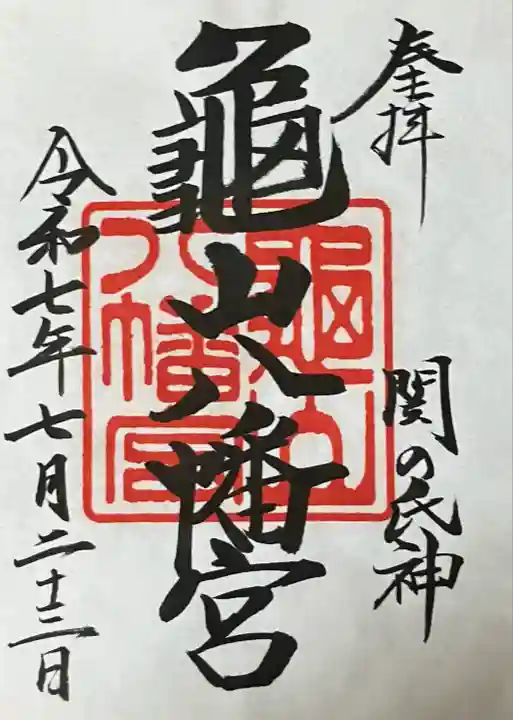 奉拝
関の氏神
龜山八幡宮
龜山
八幡宮
令和七年七月二十三日